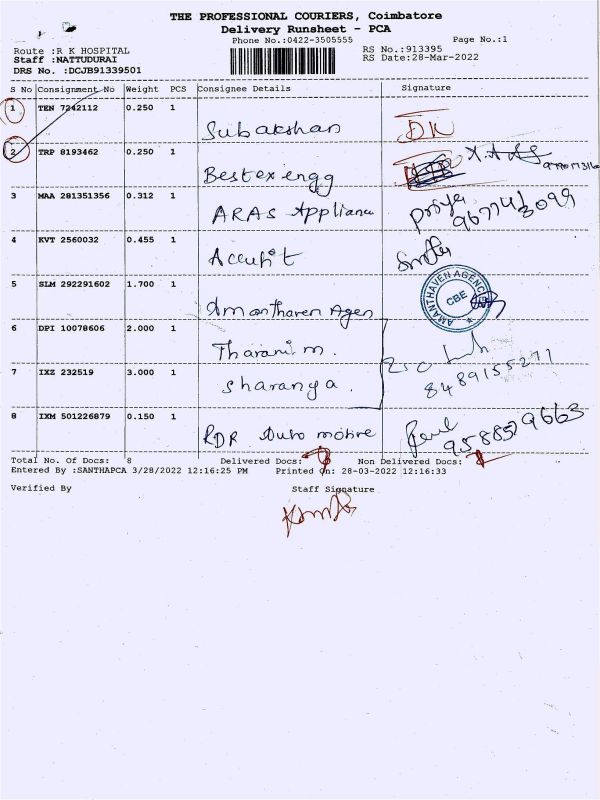 THE PROFESSIONAL COURIERS, Coimbatore
Delivery Runsheet - PCA
Phone No.:0422-3505555 Page No.:1
Route :R K HOSPITAL RS No.:913395
Staff :NATTUDURAI RS Date:28-Mar-2022
DRS No. :DCJB91339501
S No Consignment No Weight PCS Consignee Details Signature
1 TEN 7242112 0.250 1
Subakshan DK
2 TRP 8193462 0.250 1
Bestex engg
3 MAA 281351356 0.312 1
ARAS Appliance Priya
4 KVT 2560032 0.455 1
Accufit
5 SLM 292291602 1.700 1
Amanthaven Agen
AMANTHAVEN AGENCY CBE
6 DPI 10078606 2.000 1
Tharani m.
7 IXZ 232519 3.000 1
Sharanya. 8489155271
8 IXM 501226879 0.150 1
RDR Auto motive
Total No. Of Docs: 8 Delivered Docs: Non Delivered Docs:
Entered By :SANTHAPCA 3/28/2022 12:16:25 PM Printed On: 28-03-2022 12:16:33
Verified By Staff Signature